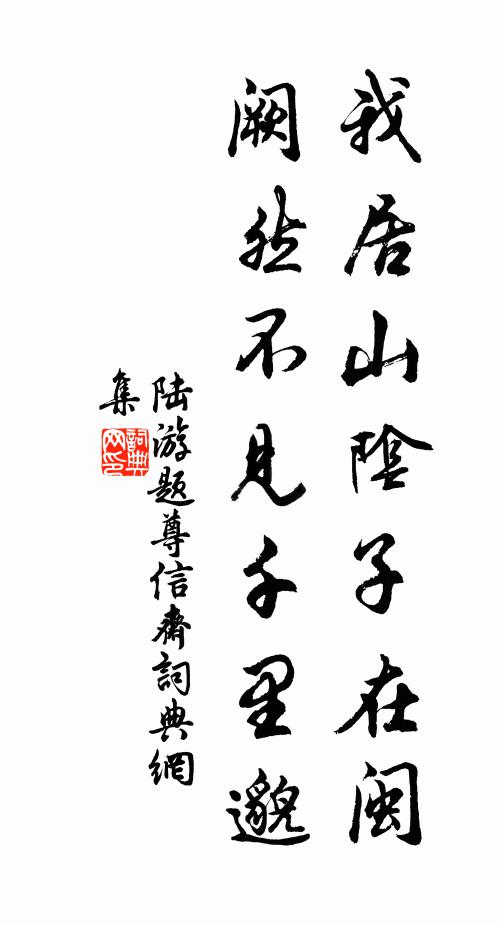 我居山陰子在閩
闕然不見千里邈
陆游题尊信齋詞典網
集
詞典
网印